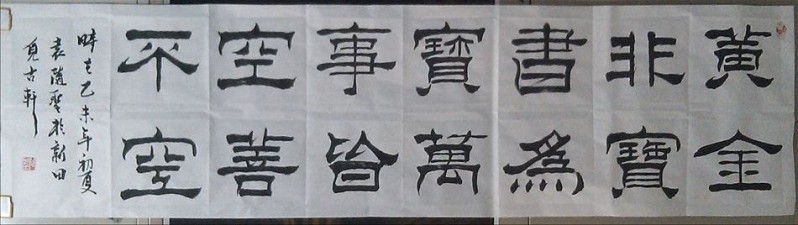 黃金
非寶
書為
寶萬
事皆
空善
不空
時在乙未年初夏
袁隨聖於新田
見古軒